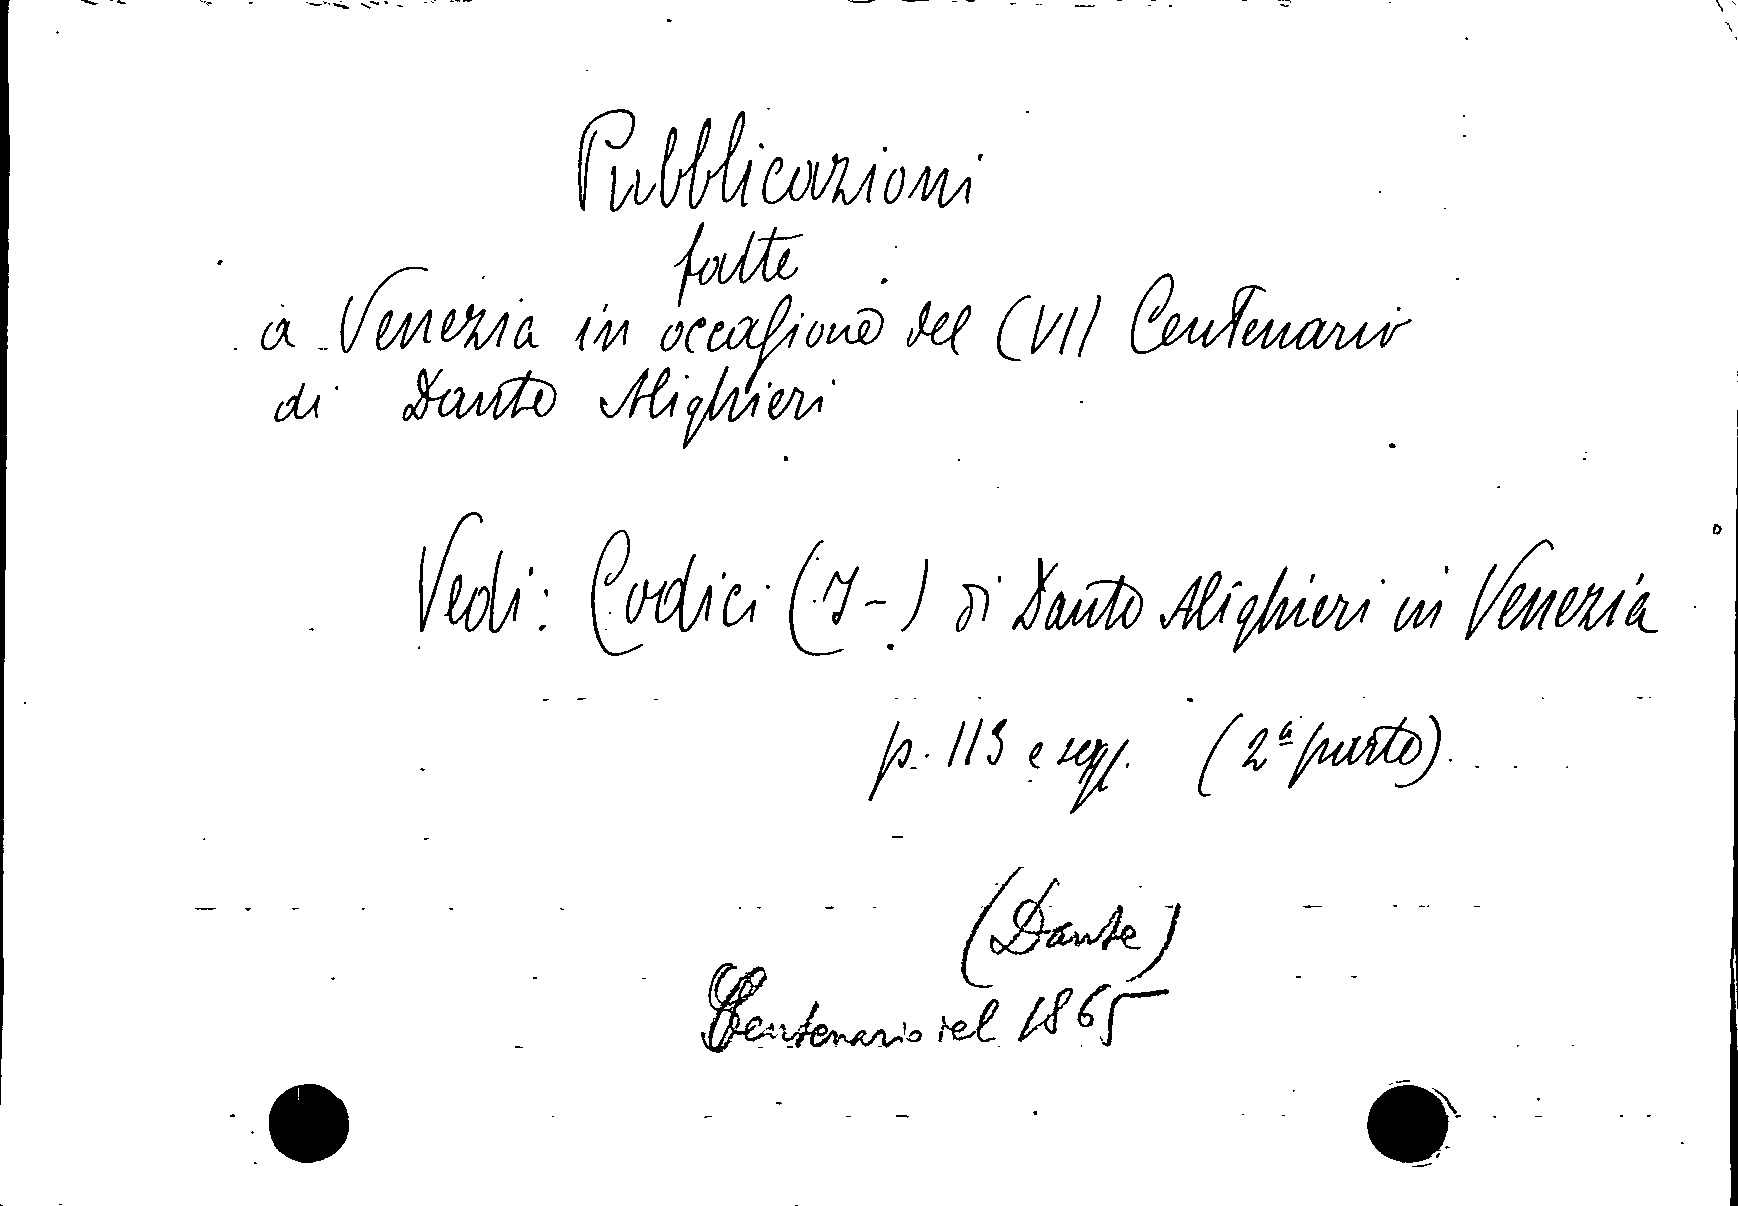 Pubblicazioni
fatte
a Venezia in occasione del (VI) Centenario
di Dante Alighieri
Vedi: Codici (I-) di Dante Alighieri in Venezia
p. 113 e segg. (2ª parte)
(Dante)
Centenario del 1865